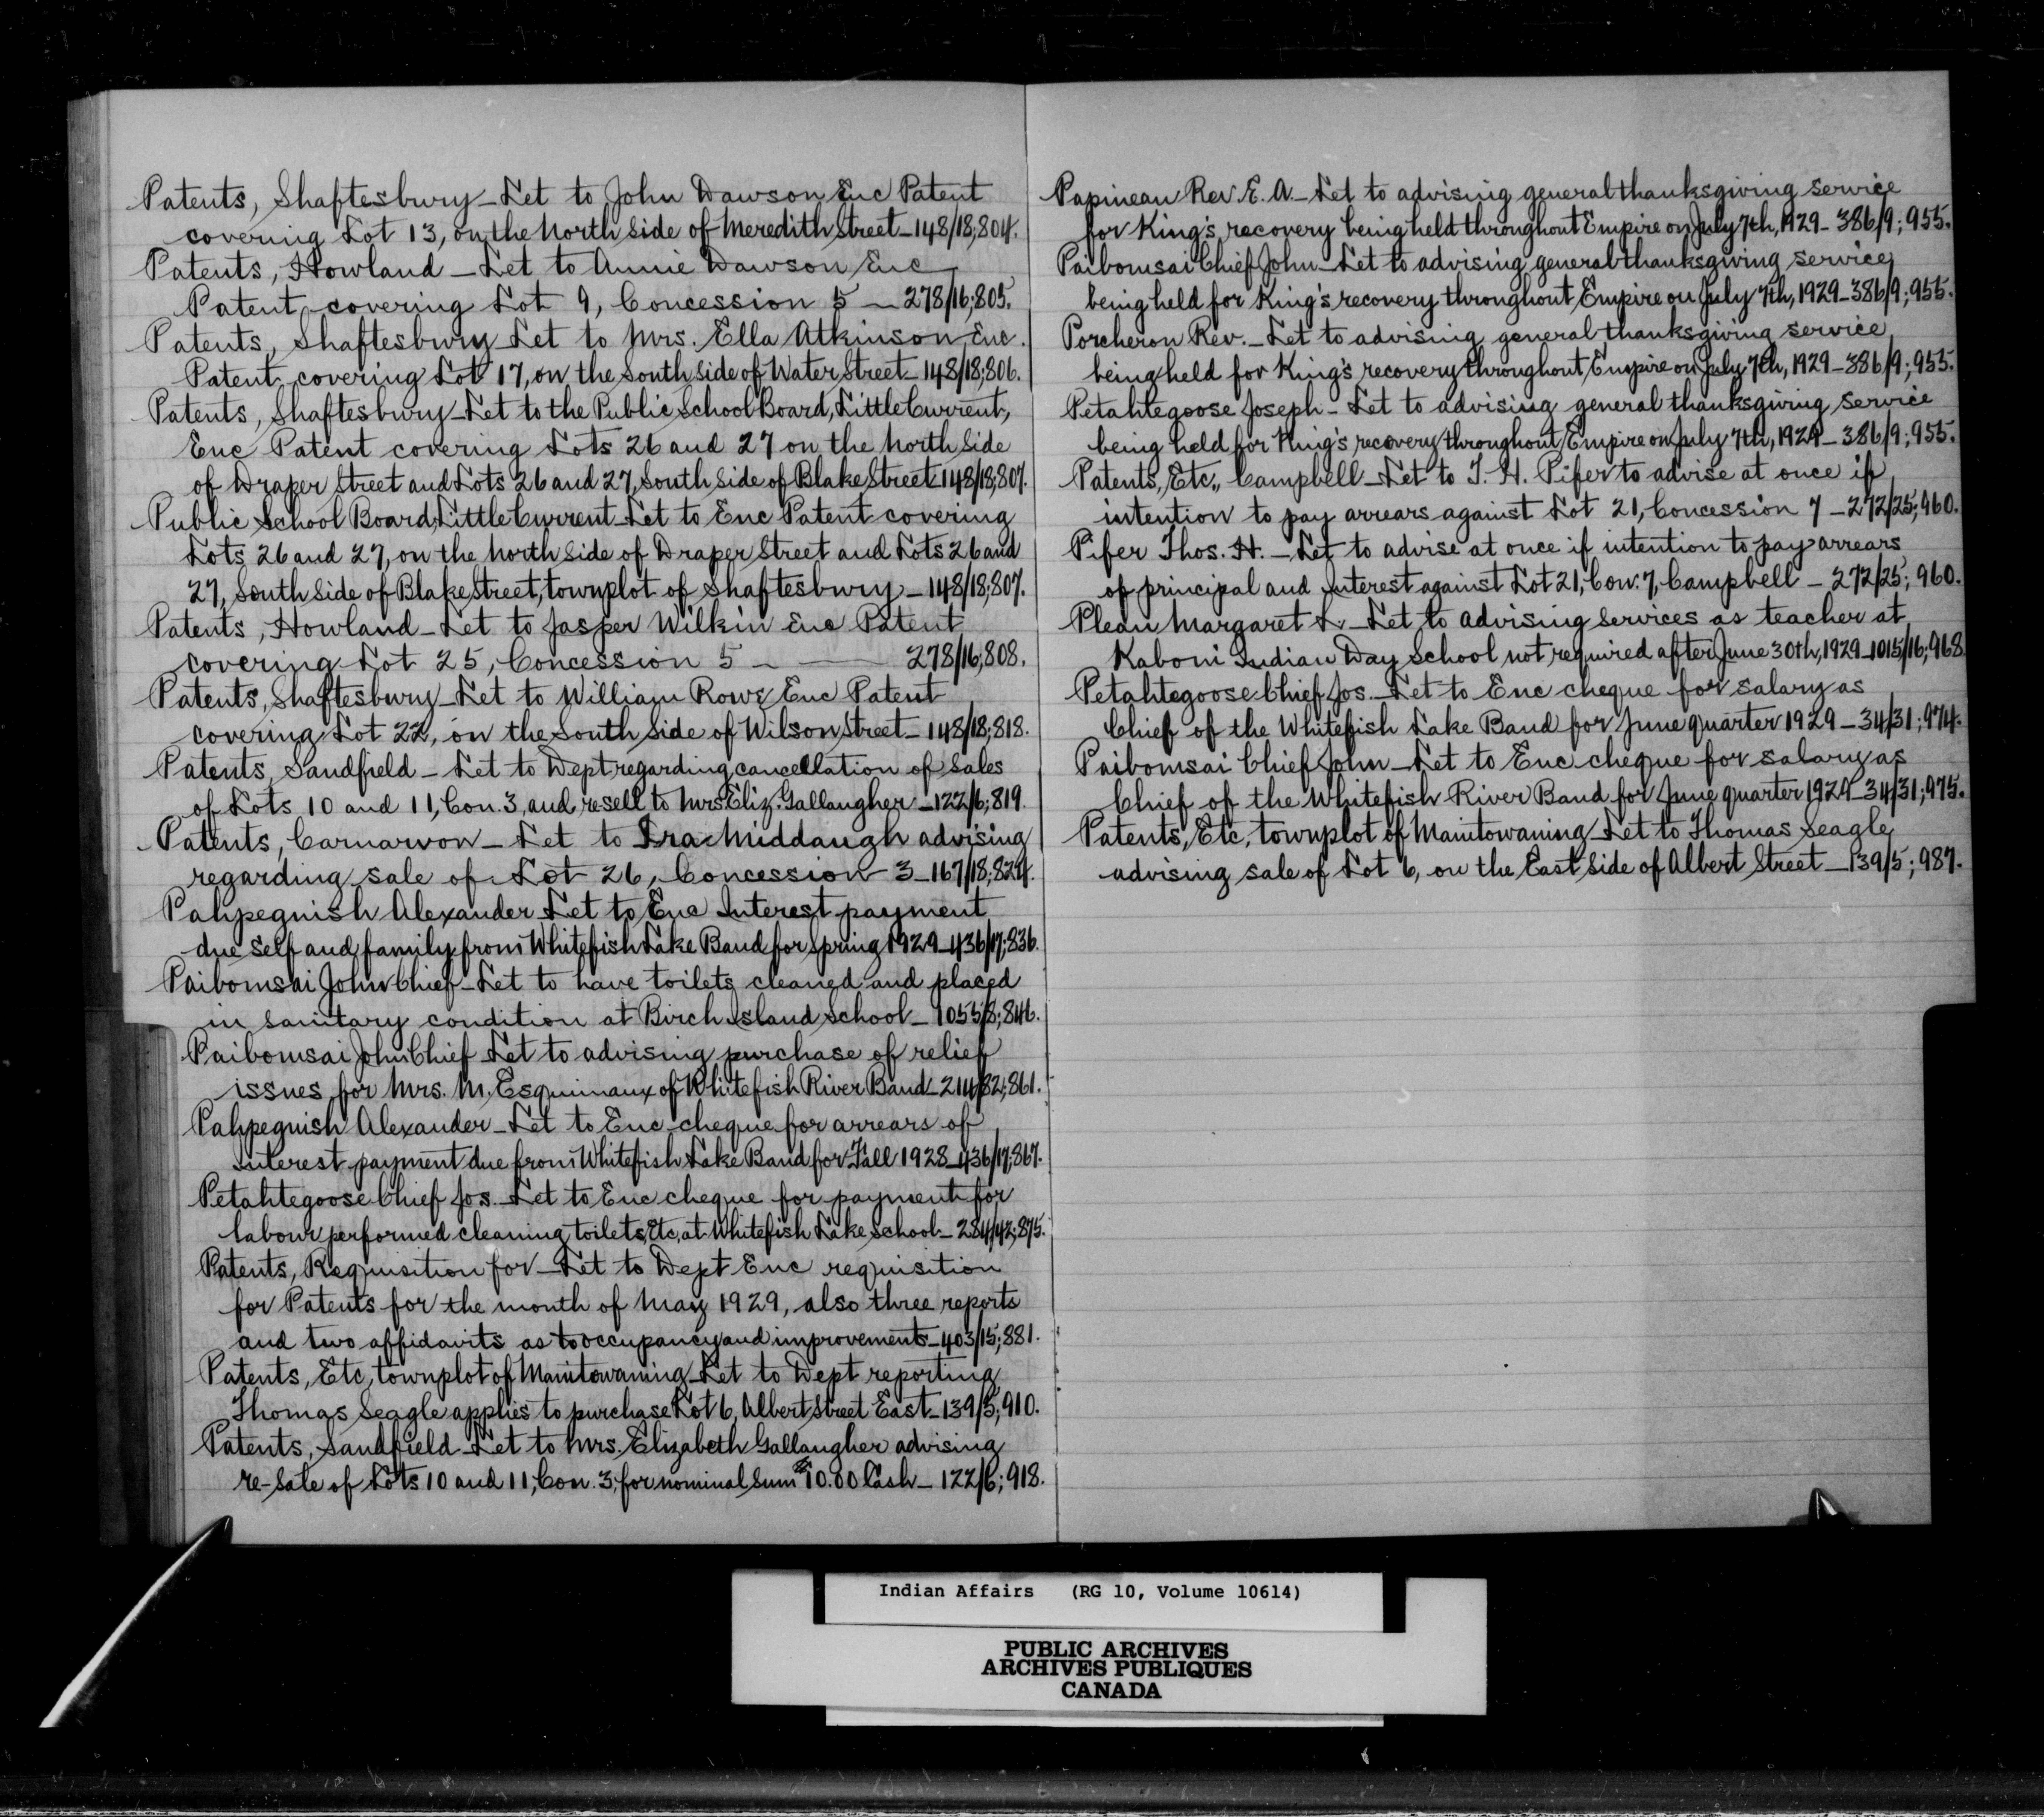 Patents, Shaftesbury - Let to John Dawson Enc Patent
covering Lot 13, on the North Side of Meredith Street - 148/18;804.
Patents, Howland - Let to Annie Dawson Enc
Patent covering Lot 9, Concession 5 - 278/16;805.
Patents, Shaftesbury - Let to Mrs. Ella Atkinson Enc.
Patent covering Lot 17, on the South Side of Water Street - 148/18;806.
Patents, Shaftesbury - Let to the Public School Board, Little Current,
Enc Patent covering Lots 26 and 27 on the North Side
of Draper Street and Lots 26 and 27, South Side of Blake Street - 148/18;807.
Public School Board, Little Current - Let to Enc Patent covering
Lots 26 and 27, on the North Side of Draper Street and Lots 26 and
27, South Side of Blake Street, townplot of Shaftesbury - 148/18;807.
Patents, Howland - Let to Jasper Wilkin Enc Patent
covering Lot 25, Concession 5 - 278/16;808.
Patents, Shaftesbury - Let to William Rowe, Enc Patent
covering Lot 22, on the South Side of Wilson Street - 148/18;818.
Patents, Sandfield - Let to Dept regarding cancellation of Sales
of Lots 10 and 11, Con. 3, and resell to Mrs Eliz. Gallaugher - 122/6;819.
Patents, Carnarvon - Let to Ira Middaugh advising
regarding sale of Lot 26, Concession 3 - 167/18;824.
Pahpeguish Alexander - Let to Enc Interest payment
due self and family from Whitefish Lake Band for Spring 1929 - 436/17;836.
Paibomsai John Chief - Let to have toilets cleaned and placed
in sanitary condition at Birch Island School - 1055/8;846.
Paibomsai John Chief - Let to advising purchase of relief
issues for Mrs. M. Esquimaux of Whitefish River Band - 214/82;861.
Pahpeguish Alexander - Let to Enc cheque for arrears of
Interest payment due from Whitefish Lake Band for Fall 1928 - 436/17;867.
Petahtegoose Chief Jos. - Let to Enc cheque for payment for
labour performed cleaning toilets, Etc, at Whitefish Lake School - 284/42;875.
Patents, Requisition for - Let to Dept Enc requisition
for Patents for the month of May 1929, also three reports
and two affidavits as to occupancy and improvements - 403/15;881.
Patents, Etc, townplot of Manitowaning - Let to Dept reporting
Thomas Seagle applies to purchase Lot 6, Albert Street East - 139/5;910.
Patents, Sandfield - Let to Mrs. Elizabeth Gallaugher advising
re-sale of Lots 10 and 11, Con. 3, for nominal sum $10.00 Cash - 122/6;918.
Papineau Rev. E. A. - Let to advising general thanksgiving service
for King's recovery being held throughout Empire on July 7th, 1929 - 386/9;955.
Paibomsai Chief John - Let to advising general thanksgiving service
being held for King's recovery throughout Empire on July 7th, 1929 - 386/9;955.
Porcheron Rev. - Let to advising general thanksgiving service
being held for King's recovery throughout Empire on July 7th, 1929 - 386/9;955.
Petahtegoose Joseph - Let to advising general thanksgiving service
being held for King's recovery throughout Empire on July 7th, 1929 - 386/9;955.
Patents, Etc., Campbell - Let to T. H. Pifer to advise at once if
intention to pay arrears against Lot 21, Concession 7 - 272/25;960.
Pifer Thos. H. - Let to advise at once if intention to pay arrears
of principal and interest against Lot 21, Con. 7, Campbell - 272/25;960.
Plean Margaret L. - Let to advising services as teacher at
Kaboni Indian Day School not required after June 30th, 1929 - 1015/16;968.
Petahtegoose Chief Jos. - Let to Enc cheque for salary as
Chief of the Whitefish Lake Band for June quarter 1929 - 34/31;974.
Paibomsai Chief John - Let to Enc cheque for salary as
Chief of the Whitefish River Band for June quarter 1929 - 34/31;975.
Patents, Etc, townplot of Manitowaning - Let to Thomas Seagle
advising sale of Lot 6, on the East Side of Albert Street - 139/5;987.
Indian Affairs (RG 10, Volume 10614)
PUBLIC ARCHIVES
ARCHIVES PUBLIQUES
CANADA